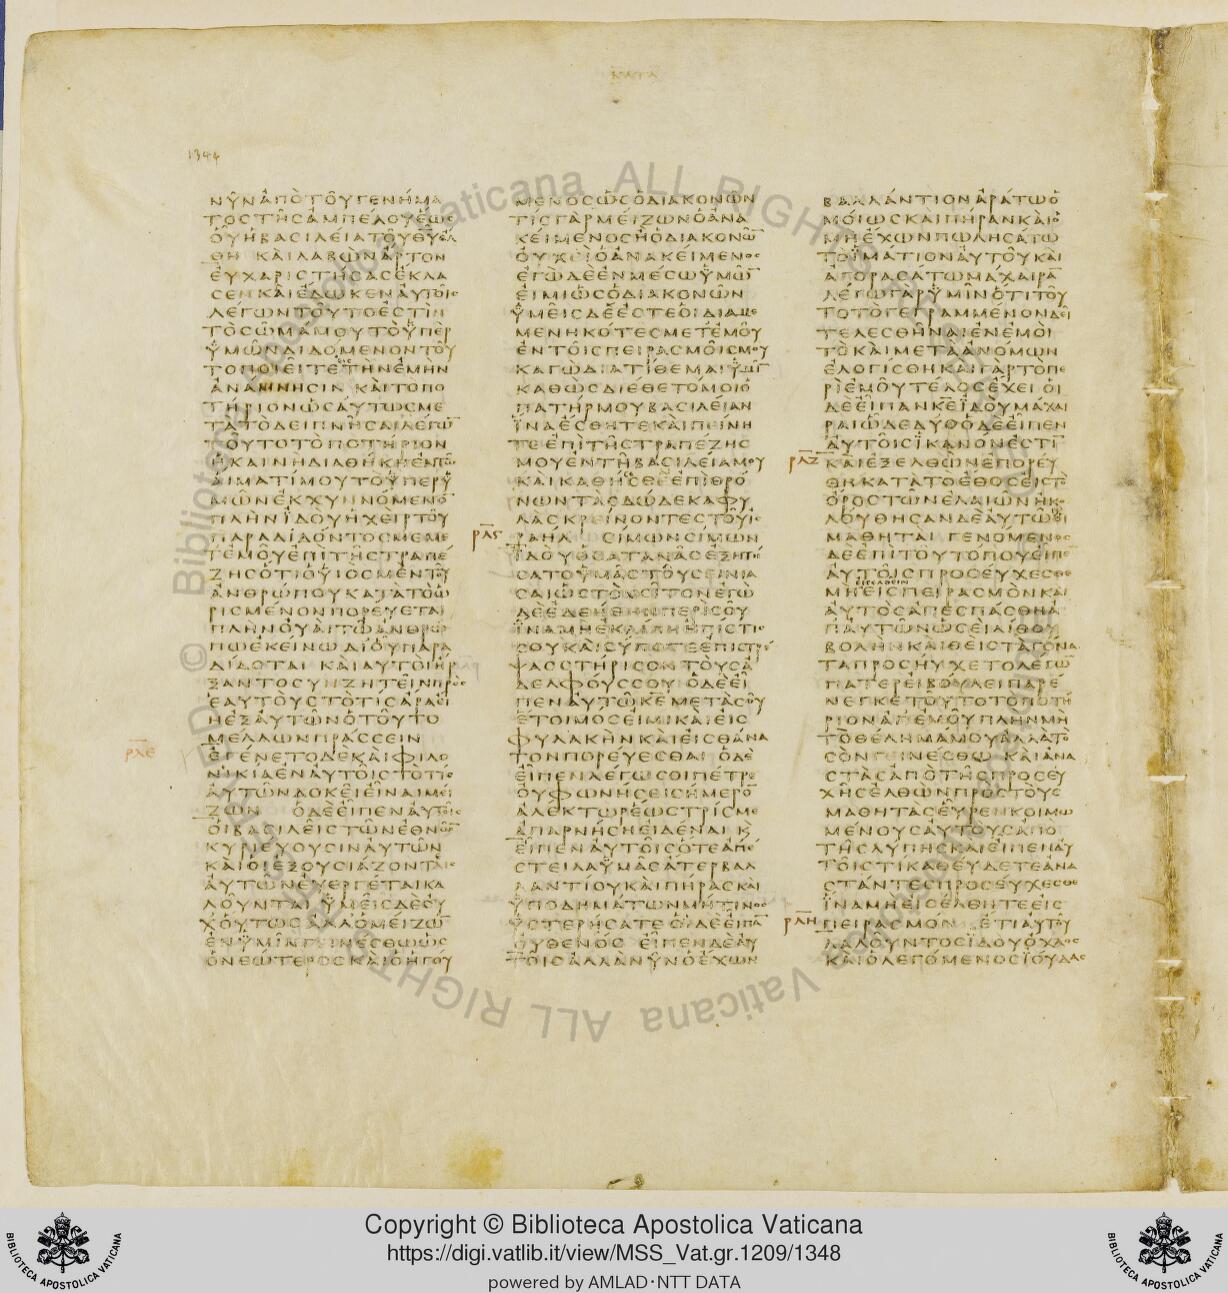 ΚΑΤΑ
1344
ΝΥΝΑΠΟΤΟΥΓΕΝΗΜΑ
ΤΟΣΤΗΣΑΜΠΕΛΟΥΕΩΣ
ΟΥΗΒΑΣΙΛΕΙΑΤΟΥΘΥΕΛ
ΘΗ ΚΑΙΛΑΒΩΝΑΡΤΟΝ
ΕΥΧΑΡΙΣΤΗΣΑΣΕΚΛΑ
ΣΕΝΚΑΙΕΔΩΚΕΝΑΥΤΟΙΣ
ΛΕΓΩΝΤΟΥΤΟΕΣΤΙΝ
ΤΟΣΩΜΑΜΟΥΤΟΥΠΕΡ
ΥΜΩΝΔΙΔΟΜΕΝΟΝΤΟΥ
ΤΟΠΟΙΕΙΤΕΕΙΣΤΗΝΕΜΗΝ
ΑΝΑΜΝΗΣΙΝ ΚΑΙΤΟΠΟ
ΤΗΡΙΟΝΩΣΑΥΤΩΣΜΕ
ΤΑΤΟΔΕΙΠΝΗΣΑΙΛΕΓΩ̄
ΤΟΥΤΟΤΟΠΟΤΗΡΙΟΝ
ΗΚΑΙΝΗΔΙΑΘΗΚΗΕΝΤΩ
ΑΙΜΑΤΙΜΟΥΤΟΥΠΕΡΥ
ΜΩΝΕΚΧΥΝΝΟΜΕΝΟ̄
ΠΛΗΝΙΔΟΥΗΧΕΙΡΤΟΥ
ΠΑΡΑΔΙΔΟΝΤΟΣΜΕΜΕ
ΤΕΜΟΥΕΠΙΤΗΣΤΡΑΠΕ
ΖΗΣΟΤΙΟΥΙΟΣΜΕΝΤΟΥ
ΑΝΘΡΩΠΟΥΚΑΤΑΤΟΩ
ΡΙΣΜΕΝΟΝΠΟΡΕΥΕΤΑΙ
ΠΛΗΝΟΥΑΙΤΩΑΝΘΡΩ
ΠΩΕΚΕΙΝΩΔΙΟΥΠΑΡΑ
ΔΙΔΟΤΑΙ ΚΑΙΑΥΤΟΙΗΡ
ΞΑΝΤΟΣΥΝΖΗΤΕΙΝΠΡΟΣ
ΕΑΥΤΟΥΣΤΟΤΙΣΑΡΑΕΙ
ΗΕΞΑΥΤΩΝΟΤΟΥΤΟ
ΜΕΛΛΩΝΠΡΑΣΣΕΙΝ
ΡΛΕ ΕΓΕΝΕΤΟΔΕΚΑΙΦΙΛΟ
ΝΙΚΙΑΕΝΑΥΤΟΙΣΤΟΤΙΣ
ΑΥΤΩΝΔΟΚΕΙΕΙΝΑΙΜΕΙ
ΖΩΝ ΟΔΕΕΙΠΕΝΑΥΤΟΙΣ
ΟΙΒΑΣΙΛΕΙΣΤΩΝΕΘΝΩ̄
ΚΥΡΙΕΥΟΥΣΙΝΑΥΤΩΝ
ΚΑΙΟΙΕΞΟΥΣΙΑΖΟΝΤΕΣ
ΑΥΤΩΝΕΥΕΡΓΕΤΑΙΚΑ
ΛΟΥΝΤΑΙ ΥΜΕΙΣΔΕΟΥ
ΧΟΥΤΩΣΑΛΛΟΜΕΙΖΩ̄
ΕΝΥΜΙΝΓΕΙΝΕΣΘΩΩΣ
ΟΝΕΩΤΕΡΟΣΚΑΙΟΗΓΟΥ
ΜΕΝΟΣΩΣΟΔΙΑΚΟΝΩΝ
ΤΙΣΓΑΡΜΕΙΖΩΝΟΑΝΑ
ΚΕΙΜΕΝΟΣΗΟΔΙΑΚΟΝΩ̄
ΟΥΧΕΙΟΑΝΑΚΕΙΜΕΝΟΣ
ΕΓΩΔΕΕΝΜΕΣΩΥΜΩ̄
ΕΙΜΙΩΣΟΔΙΑΚΟΝΩΝ
ΥΜΕΙΣΔΕΕΣΤΕΟΙΔΙΑΜΕ
ΜΕΝΗΚΟΤΕΣΜΕΤΕΜΟΥ
ΕΝΤΟΙΣΠΕΙΡΑΣΜΟΙΣΜΟΥ
ΚΑΓΩΔΙΑΤΙΘΕΜΑΙΥΜῙ
ΚΑΘΩΣΔΙΕΘΕΤΟΜΟΙΟ
ΠΑΤΗΡΜΟΥΒΑΣΙΛΕΙΑΝ
ΙΝΑΕΣΘΗΤΕΚΑΙΠΕΙΝΗ
ΤΕΕΠΙΤΗΣΤΡΑΠΕΖΗΣ
ΜΟΥΕΝΤΗΒΑΣΙΛΕΙΑΜΟΥ
ΚΑΙΚΑΘΗΣΘΕΕΠΙΘΡΟ
ΝΩΝΤΑΣΔΩΔΕΚΑΦΥ
ΛΑΣΚΡΕΙΝΟΝΤΕΣΤΟΥΙΣ
ΡΛϚ ΡΑΗΛ ΣΙΜΩΝΣΙΜΩΝ
ΙΔΟΥΟΣΑΤΑΝΑΣΕΞΗΤΗ
ΣΑΤΟΥΜΑΣΤΟΥΣΙΝΙΑ
ΣΑΙΩΣΤΟΝΣΙΤΟΝΕΓΩ
ΔΕΕΔΕΗΘΗΝΠΕΡΙΣΟΥ
ΙΝΑΜΗΕΚΛΙΠΗΗΠΙΣΤΙΣ
ΣΟΥΚΑΙΣΥΠΟΤΕΕΠΙΣΤΡΕ
ΨΑΣΣΤΗΡΙΣΟΝΤΟΥΣΑ
ΔΕΛΦΟΥΣΣΟΥ ΟΔΕΕΙ
ΠΕΝΑΥΤΩΚΕΜΕΤΑΣΟΥ
ΕΤΟΙΜΟΣΕΙΜΙΚΑΙΕΙΣ
ΦΥΛΑΚΗΝΚΑΙΕΙΣΘΑΝΑ
ΤΟΝΠΟΡΕΥΕΣΘΑΙ ΟΔΕ
ΕΙΠΕΝΛΕΓΩΣΟΙΠΕΤΡΕ
ΟΥΦΩΝΗΣΕΙΣΗΜΕΡΟ̄
ΑΛΕΚΤΩΡΕΩΣΤΡΙΣΜΕ
ΑΠΑΡΝΗΣΗΕΙΔΕΝΑΙ Κ
ΕΙΠΕΝΑΥΤΟΙΣΟΤΕΑΠΕ
ΣΤΕΙΛΑΥΜΑΣΑΤΕΡΒΑΛ
ΛΑΝΤΙΟΥΚΑΙΠΗΡΑΣΚΑΙ
ΥΠΟΔΗΜΑΤΩΝΜΗΤΙΝΟΣ
ΥΣΤΕΡΗΣΑΤΕΟΙΔΕΕΙΠᾹ
ΟΥΘΕΝΟΣ ΕΙΠΕΝΔΕΑΥ
ΤΟΙΣΑΛΛΑΝΥΝΟΕΧΩΝ
ΒΑΛΛΑΝΤΙΟΝΑΡΑΤΩΟ
ΜΟΙΩΣΚΑΙΠΗΡΑΝΚΑΙΟ
ΜΗΕΧΩΝΠΩΛΗΣΑΤΩ
ΤΟΙΜΑΤΙΟΝΑΥΤΟΥΚΑΙ
ΑΓΟΡΑΣΑΤΩΜΑΧΑΙΡᾹ
ΛΕΓΩΓΑΡΥΜΙΝΟΤΙΤΟΥ
ΤΟΤΟΓΕΓΡΑΜΜΕΝΟΝΔΕΙ
ΤΕΛΕΣΘΗΝΑΙΕΝΕΜΟΙ
ΤΟΚΑΙΜΕΤΑΑΝΟΜΩΝ
ΕΛΟΓΙΣΘΗΚΑΙΓΑΡΤΟΠΕ
ΡΙΕΜΟΥΤΕΛΟΣΕΧΕΙ ΟΙ
ΔΕΕΙΠΑΝΚΕΙΔΟΥΜΑΧΑΙ
ΡΑΙΩΔΕΔΥΟΟΔΕΕΙΠΕΝ
ΑΥΤΟΙΣΙΚΑΝΟΝΕΣΤΙ
ΡΛΖ ΚΑΙΕΞΕΛΘΩΝΕΠΟΡΕΥ
ΘΗΚΑΤΑΤΟΕΘΟΣΕΙΣΤΟ
ΟΡΟΣΤΩΝΕΛΑΙΩΝΗΚΟ
ΛΟΥΘΗΣΑΝΔΕΑΥΤΩΟΙ
ΜΑΘΗΤΑΙ ΓΕΝΟΜΕΝΟΣ
ΔΕΕΠΙΤΟΥΤΟΠΟΥΕΙΠΕ
ΑΥΤΟΙΣΠΡΟΣΕΥΧΕΣΘΕ
ΕΙΣΕΛΘΕΙΝ
ΜΗΕΙΣΠΕΙΡΑΣΜΟΝΚΑΙ
ΑΥΤΟΣΑΠΕΣΠΑΣΘΗΑ
ΠΑΥΤΩΝΩΣΕΙΛΙΘΟΥ
ΒΟΛΗΝΚΑΙΘΕΙΣΤΑΓΟΝΑ
ΤΑΠΡΟΣΗΥΧΕΤΟΛΕΓΩ̄
ΠΑΤΕΡΕΙΒΟΥΛΕΙΠΑΡΕ
ΝΕΓΚΕΤΟΥΤΟΤΟΠΟΤΗ
ΡΙΟΝΑΠΕΜΟΥΠΛΗΝΜΗ
ΤΟΘΕΛΗΜΑΜΟΥΑΛΛΑΤΟ
ΣΟΝΓΕΙΝΕΣΘΩ ΚΑΙΑΝΑ
ΣΤΑΣΑΠΟΤΗΣΠΡΟΣΕΥ
ΧΗΣΕΛΘΩΝΠΡΟΣΤΟΥΣ
ΜΑΘΗΤΑΣΕΥΡΕΝΚΟΙΜΩ
ΜΕΝΟΥΣΑΥΤΟΥΣΑΠΟ
ΤΗΣΛΥΠΗΣΚΑΙΕΙΠΕΝΑΥ
ΤΟΙΣΤΙΚΑΘΕΥΔΕΤΕΑΝΑ
ΣΤΑΝΤΕΣΠΡΟΣΕΥΧΕΣΘΕ
ΙΝΑΜΗΕΙΣΕΛΘΗΤΕΕΙΣ
ΡΛΗ ΠΕΙΡΑΣΜΟΝ ΕΤΙΑΥΤΟΥ
ΛΑΛΟΥΝΤΟΣΙΔΟΥΟΧΛΟΣ
ΚΑΙΟΛΕΓΟΜΕΝΟΣΙΟΥΔΑΣ
© Biblioteca Apostolica Vaticana ALL RIGHTS RESERVED
Copyright © Biblioteca Apostolica Vaticana
https://digi.vatlib.it/view/MSS_Vat.gr.1209/1348
powered by AMLAD·NTT DATA
BIBLIOTECA APOSTOLICA VATICANA
BIBLIOTECA APOSTOLICA VATICANA